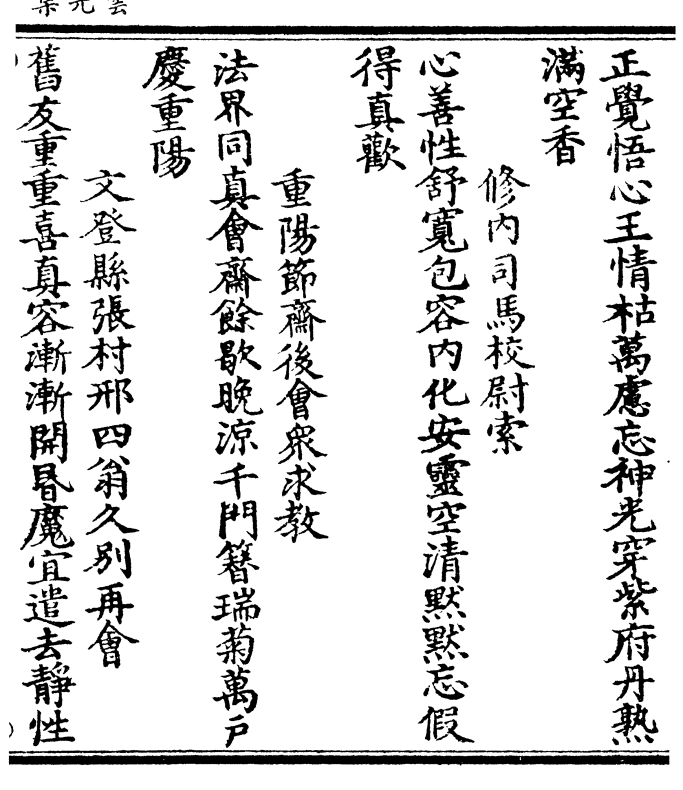 正覺悟心王情枯萬慮忘神光穿紫府丹熟
滿空香
修內司馬校尉索
心善性舒寬包容內化安靈空清默默忘假
得真歡
重陽節齋後會衆求教
法界同真會齋餘歇晚涼千門簪瑞菊萬戶
慶重陽
文登縣張村邢四翁久別再會
舊友重重喜真容漸漸開昬魔宜遣去靜性